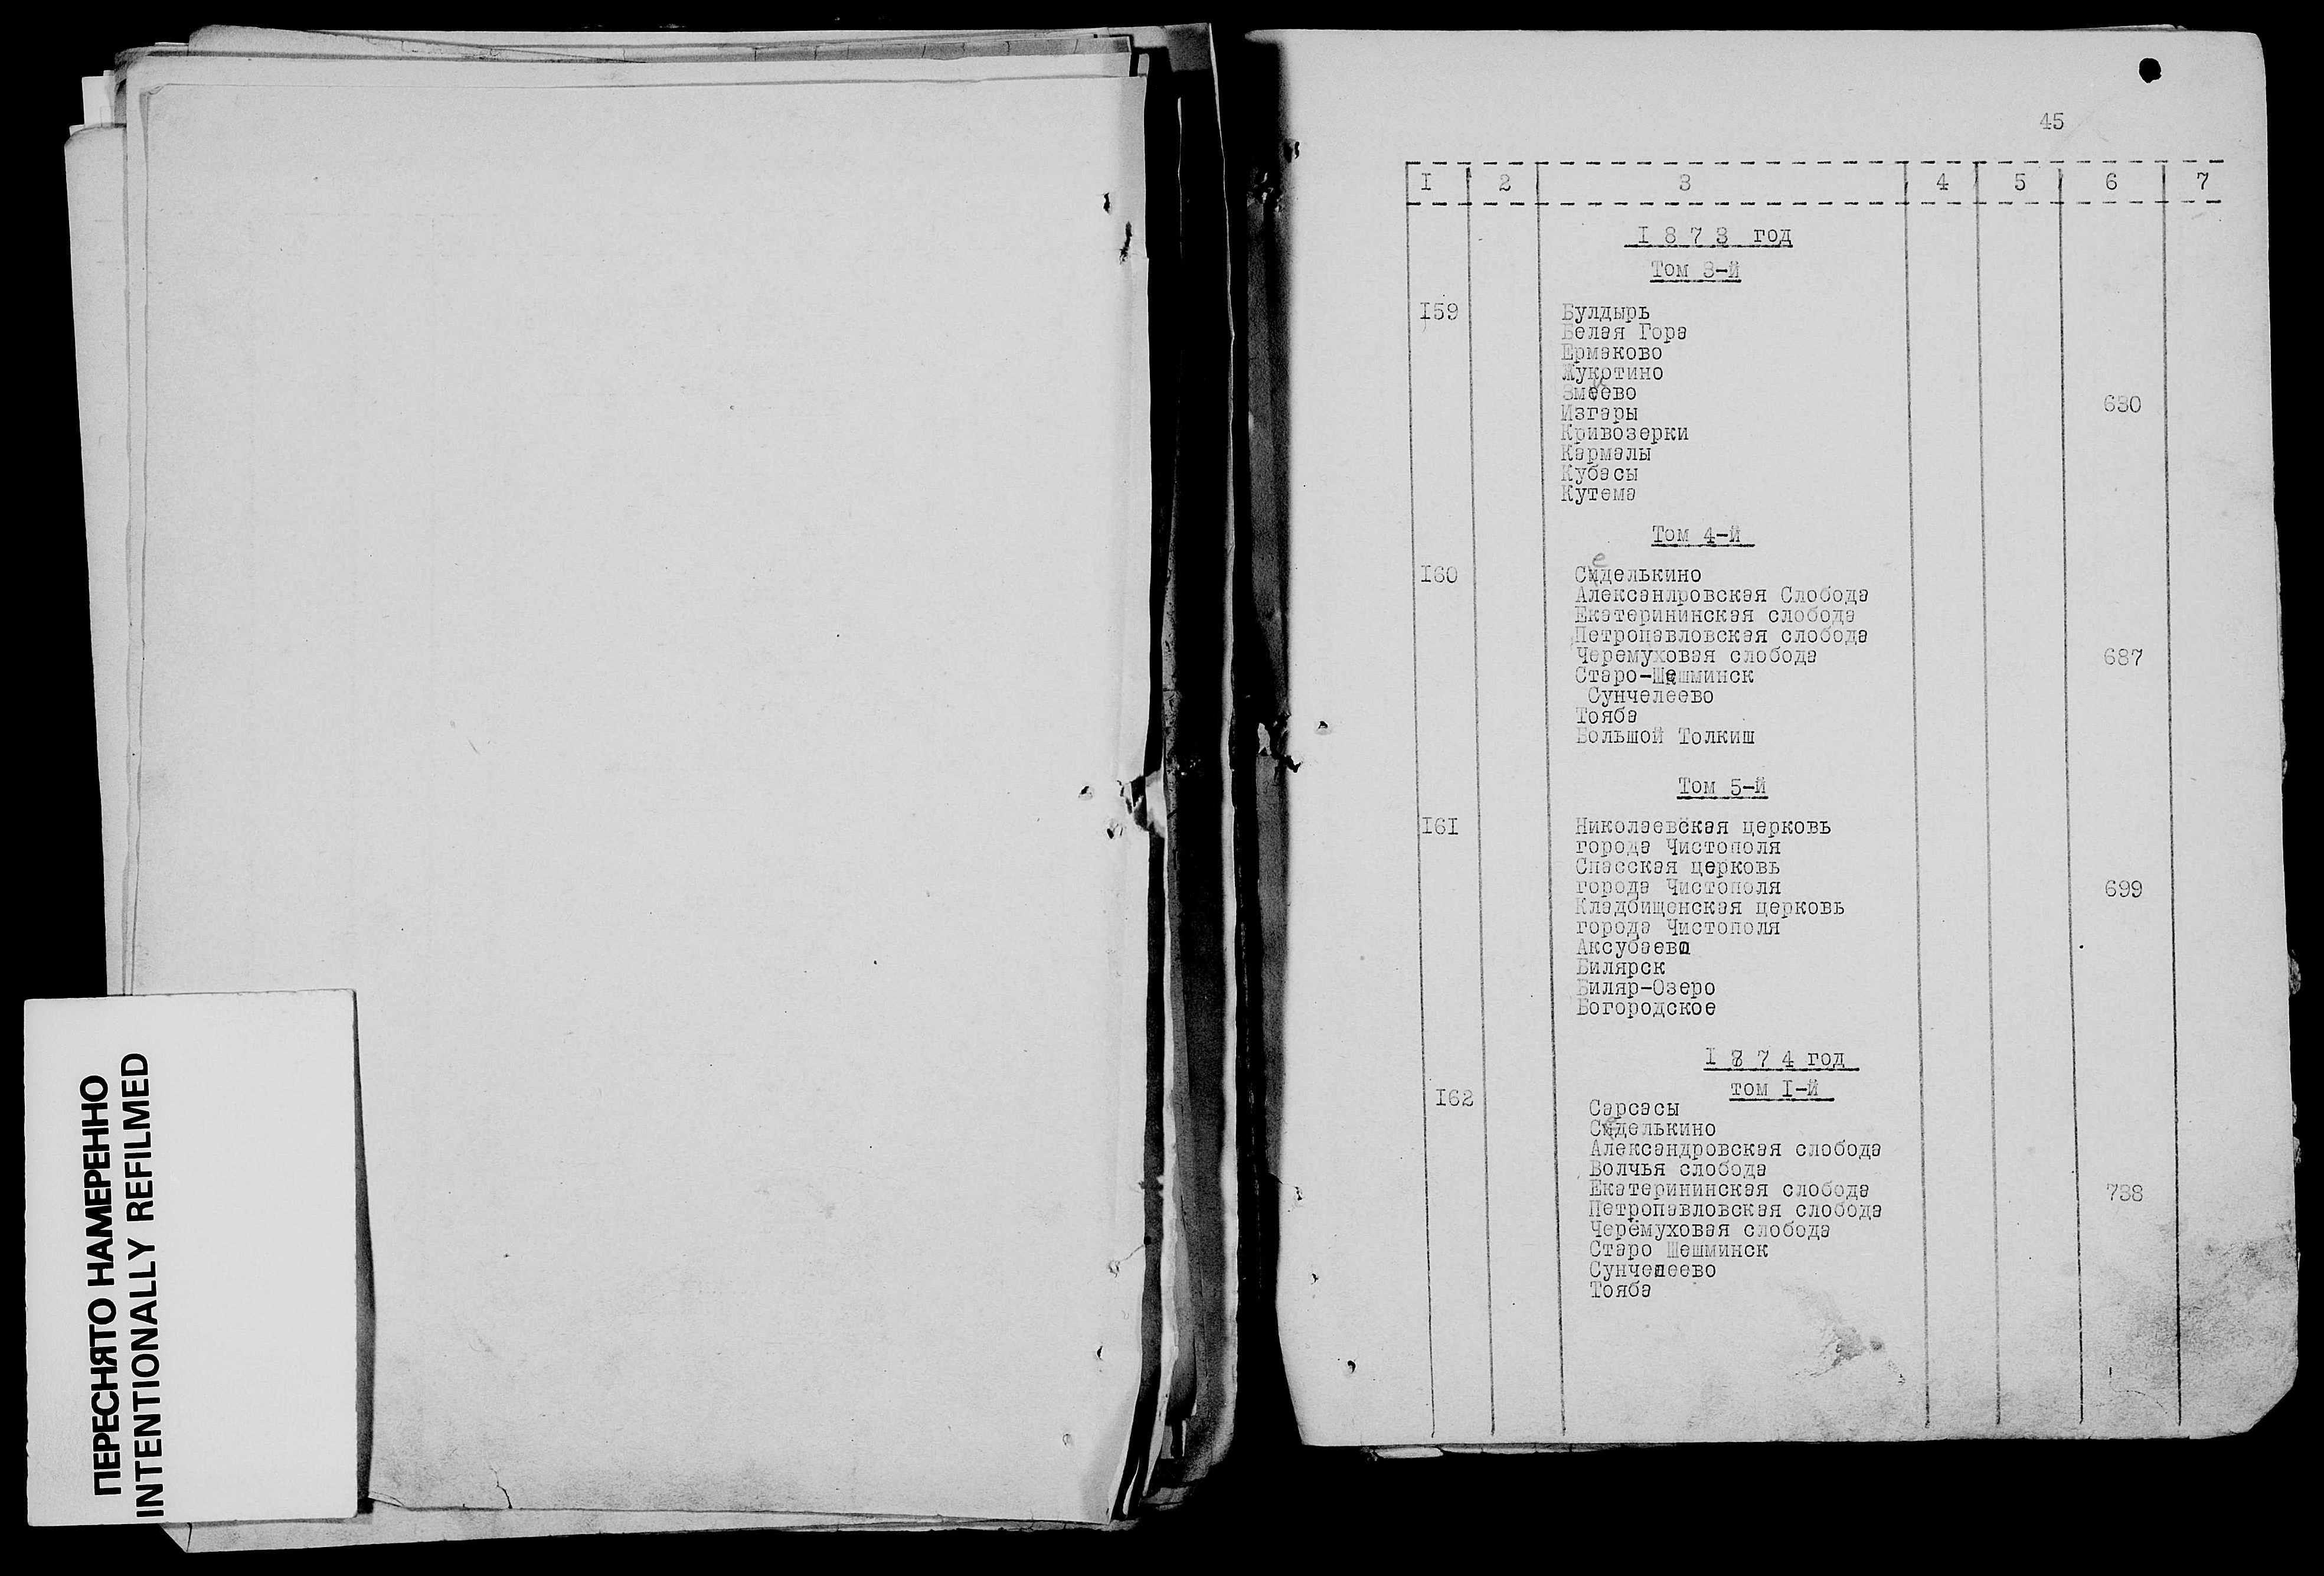 ПЕРЕСНЯТО НАМЕРЕННО
INTENTIONALLY REFILMED
45
I 2 3 4 5 6 7
I 8 7 3 год
Том 3-й
I59 Булдырь
Белая Гора
Ермаково
Жукотино
Змиево
Изгары 630
Кривозерки
Кармалы
Кубасы
Кутема
Том 4-й
I60 Седелькино
Александровская Слобода
Екатерининская слобода
Петропавловская слобода
Черемуховая слобода 687
Старо-Шешминск
Сунчелеево
Тояба
Большой Толкиш
Том 5-й
I6I Николаевская церковь
города Чистополя
Спасская церковь
города Чистополя 699
Кладбищенская церковь
города Чистополя
Аксубаево
Билярск
Биляр-Озеро
Богородское
I 8 7 4 год
том I-й
I62 Сарсасы
Седелькино
Александровская слобода
Волчья слобода
Екатерининская слобода 738
Петропавловская слобода
Черёмуховая слобода
Старо Шешминск
Сунчелеево
Тояба